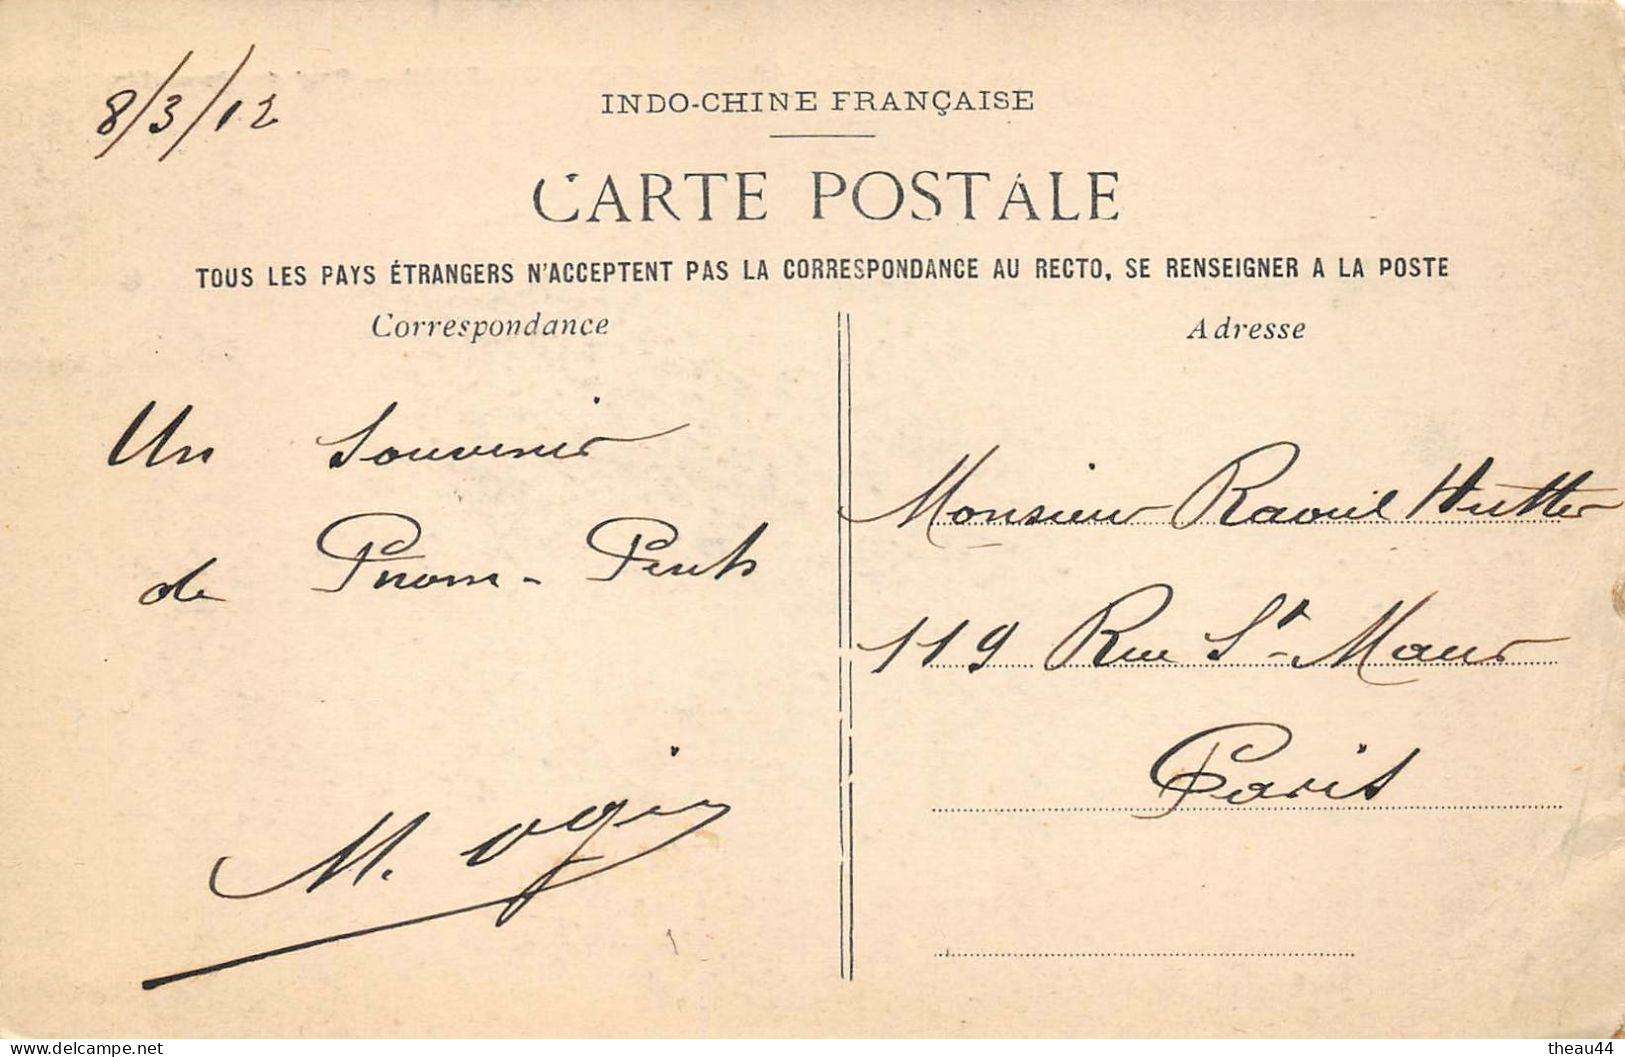 8/3/12
INDO-CHINE FRANÇAISE
CARTE POSTALE
TOUS LES PAYS ÉTRANGERS N'ACCEPTENT PAS LA CORRESPONDANCE AU RECTO, SE RENSEIGNER A LA POSTE
Correspondance
Adresse
Un Souvenir
de Pnom-Penh
M. Ogin
Monsieur Raoul Hutter
119 Rue St-Maur
Paris
delcampe.net
theau44